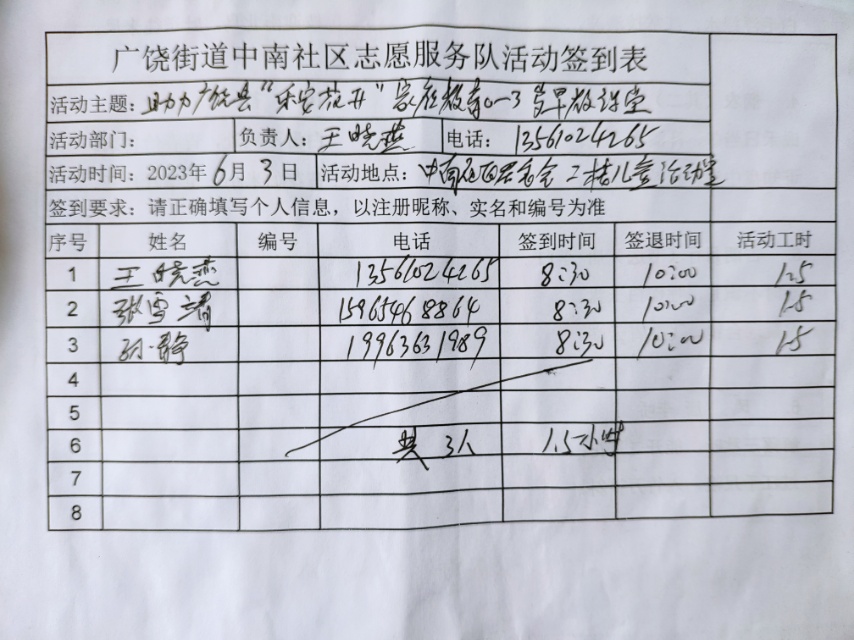 广饶街道中南社区志愿服务队活动签到表
活动主题：助力广饶县“乐安花开”家庭教育0-3岁早教课堂
活动部门： 负责人：王晓燕 电话：13561024265
活动时间：2023年6月3日 活动地点：中南社区居委会 儿童活动室
签到要求：请正确填写个人信息，以注册昵称、实名和编号为准
序号 姓名 编号 电话 签到时间 签退时间 活动工时
1 王晓燕 13561024265 8:30 10:00 1.5
2 张雪靖 15965468864 8:30 10:00 1.5
3 孙静 19963631989 8:30 10:00 1.5
4
5
6 共 3人 1.5小时
7
8